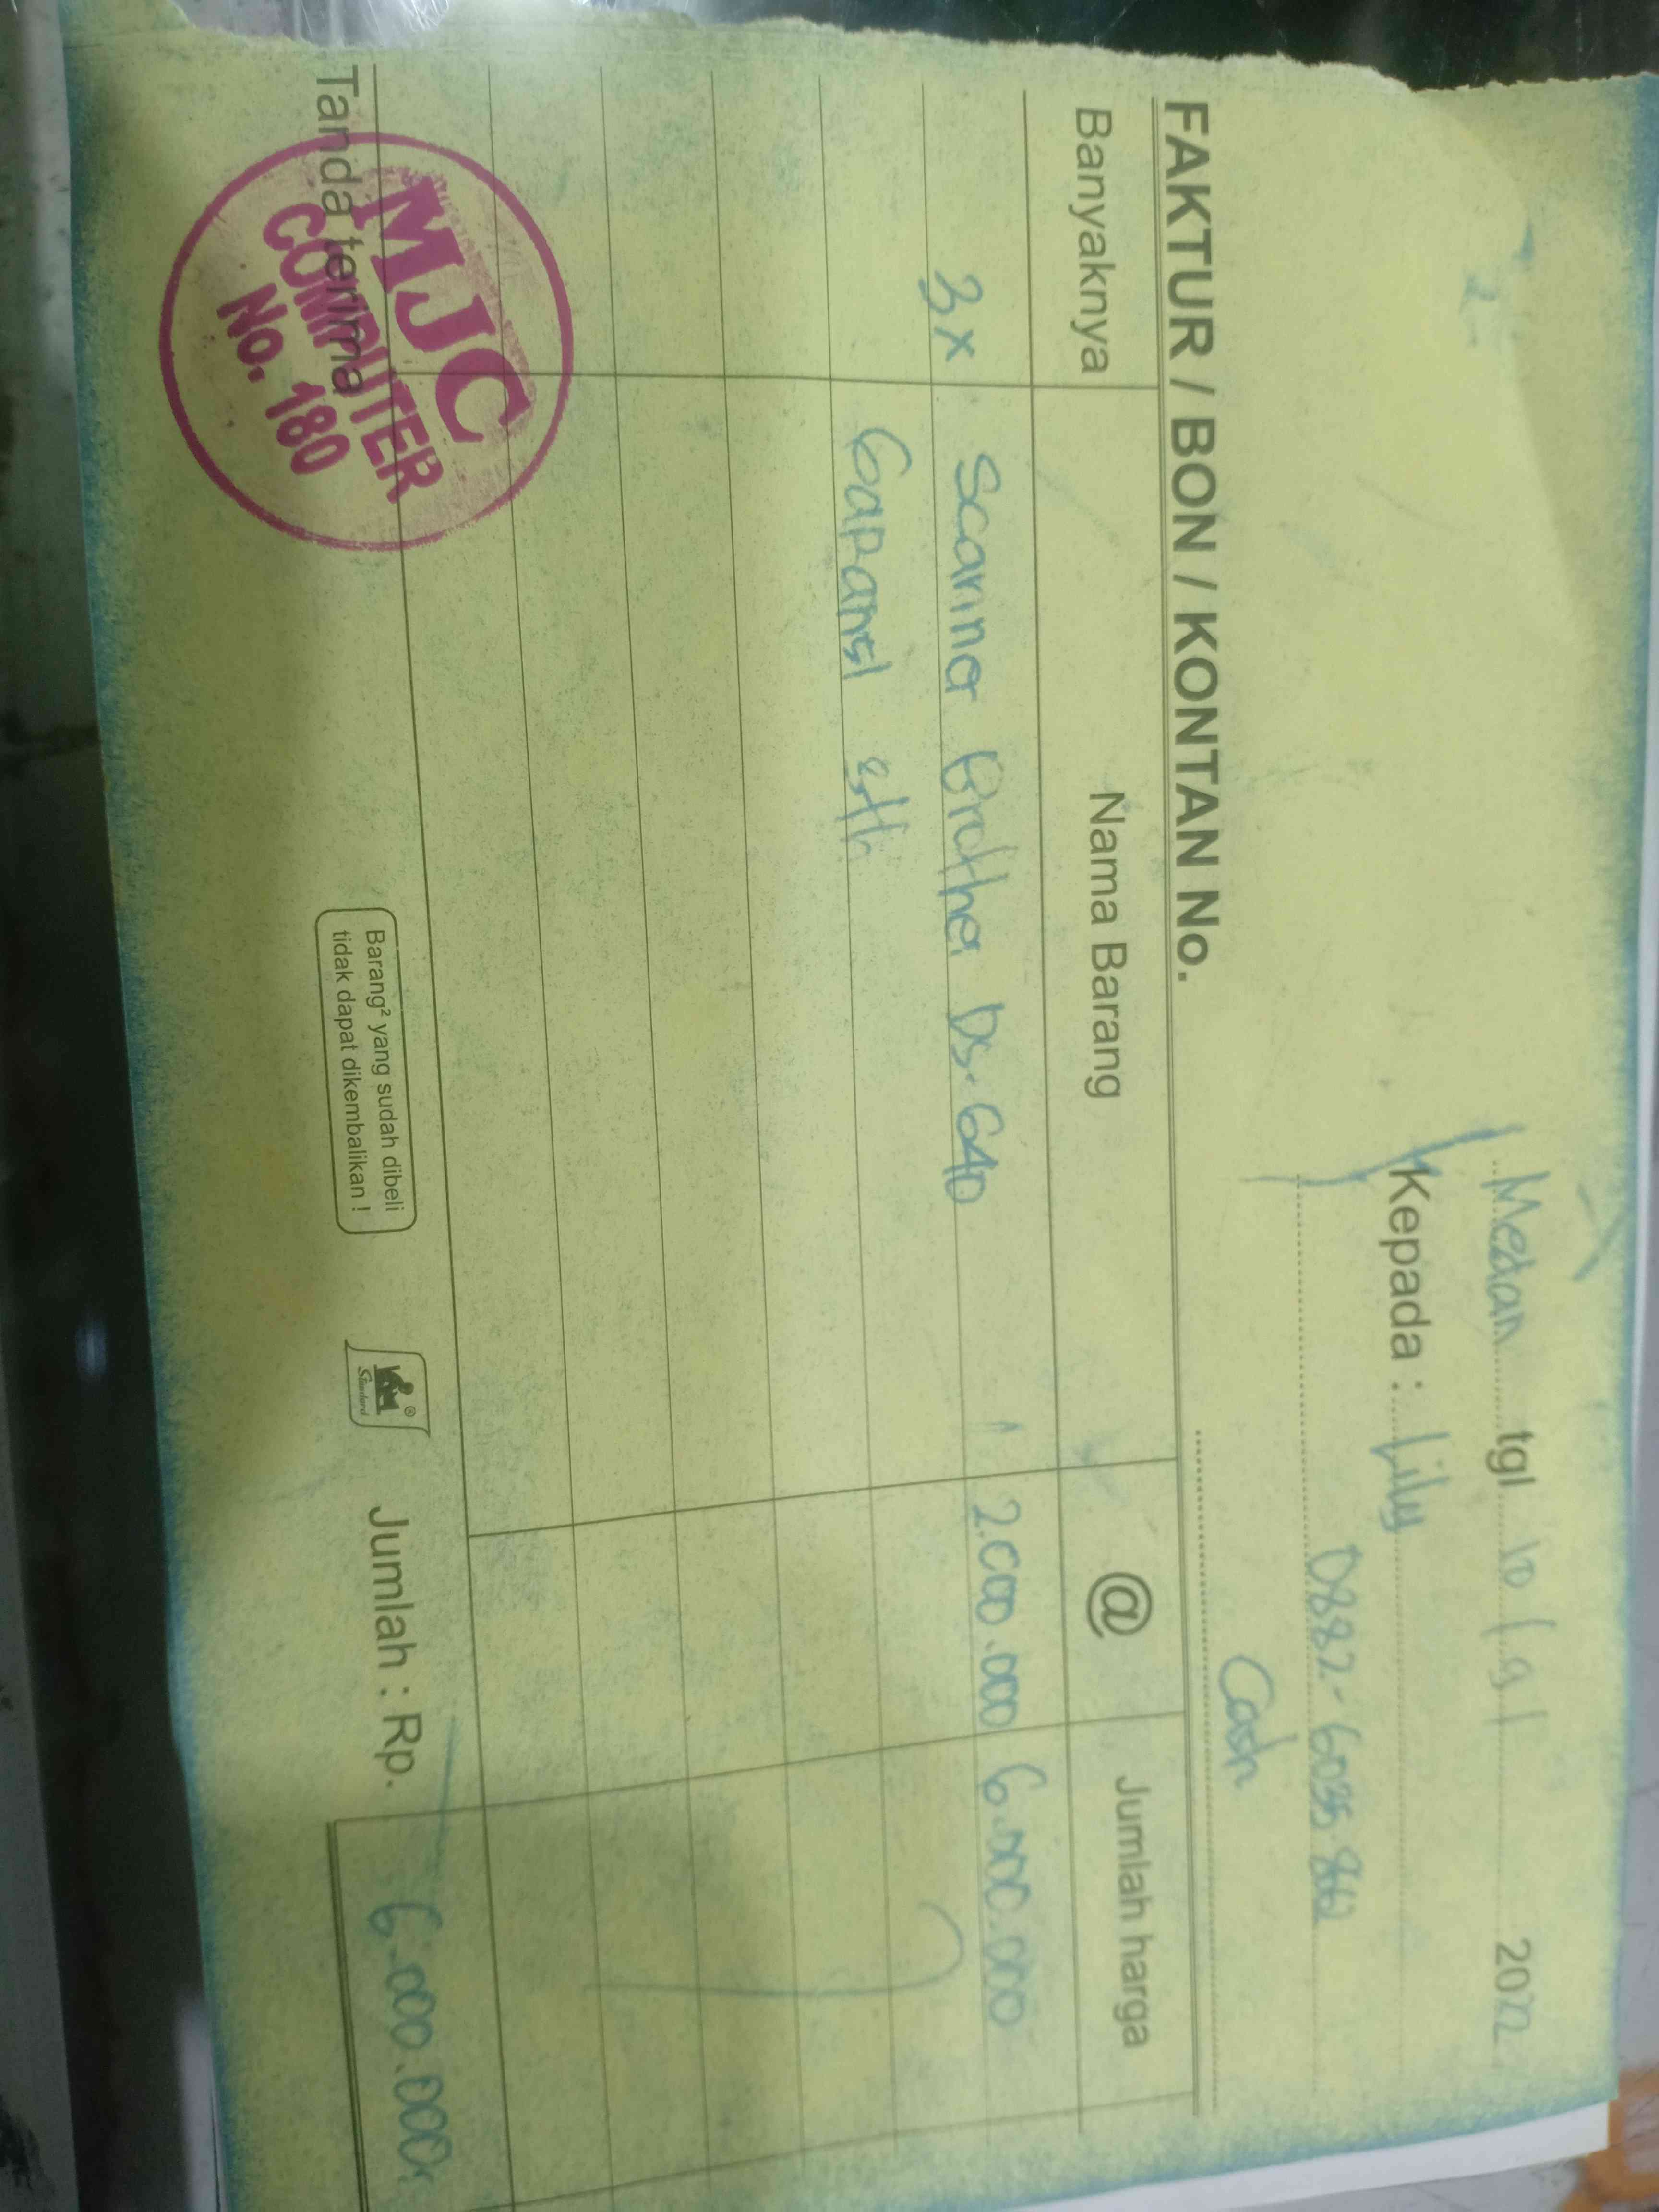 Medan tgl 10 / 9 / 2022
Kepada : Lily
0882-6035
Cash
FAKTUR / BON / KONTAN No.
Banyaknya Nama Barang @ Jumlah harga
3x Scanner Brother DS-640 2.000.000 6.000.000
Garansi
Tanda terima
MJC
COMPUTER
No. 180
Barang² yang sudah dibeli
tidak dapat dikembalikan !
Standard
Jumlah : Rp. 6.000.000